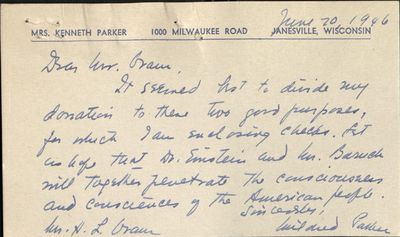 June 20, 1946
MRS. KENNETH PARKER 1000 MILWAUKEE ROAD JANESVILLE, WISCONSIN
Dear Mr. Oram,
It seemed best to divide my
donation to these two good purposes,
for which I am enclosing checks. Let
us hope that Dr. Einstein and Mr. Baruch
will together penetrate the consciousness
and consciences of the American people.
Sincerely,
Mr. H. L. Oram Mildred Parker